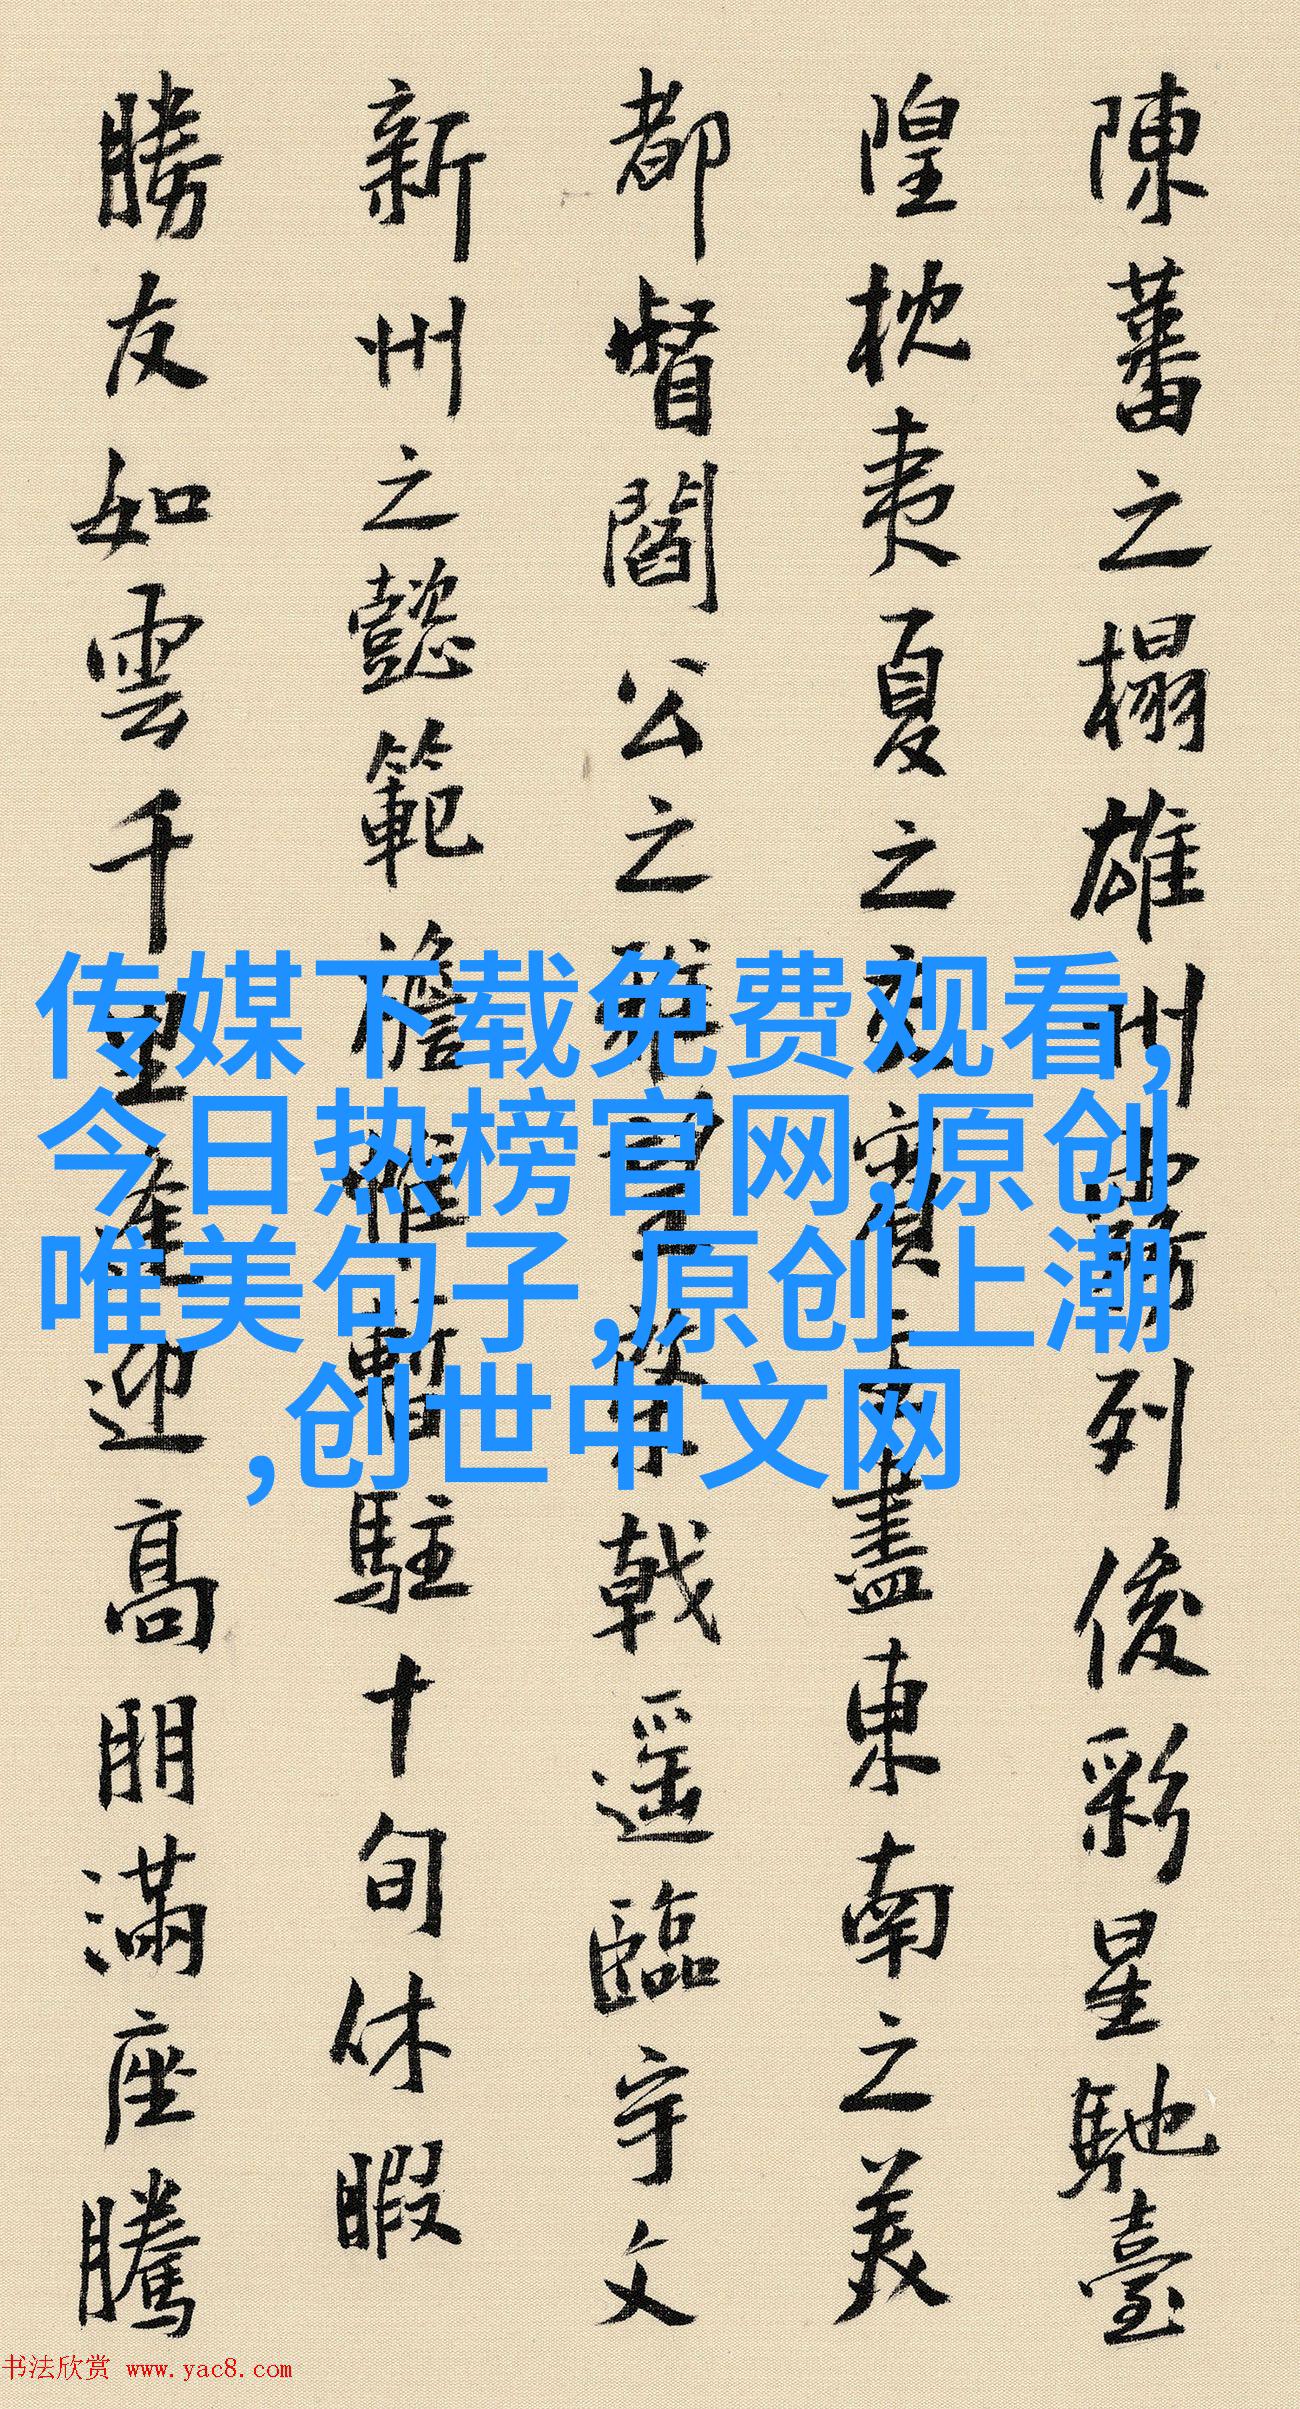 陳蕃之榻雄州霧列俊彩星馳臺
隍枕夷夏之交賓主盡東南之美
都督閻公之雅望棨戟遥臨宇文
新州之懿範襜帷暫駐十旬休暇
勝友如雲千里逢迎高朋滿座騰
传媒下载免费观看,
今日热榜官网,原创
唯美句子,原创上潮
,创世中文网
书法欣赏 www.yac8.com